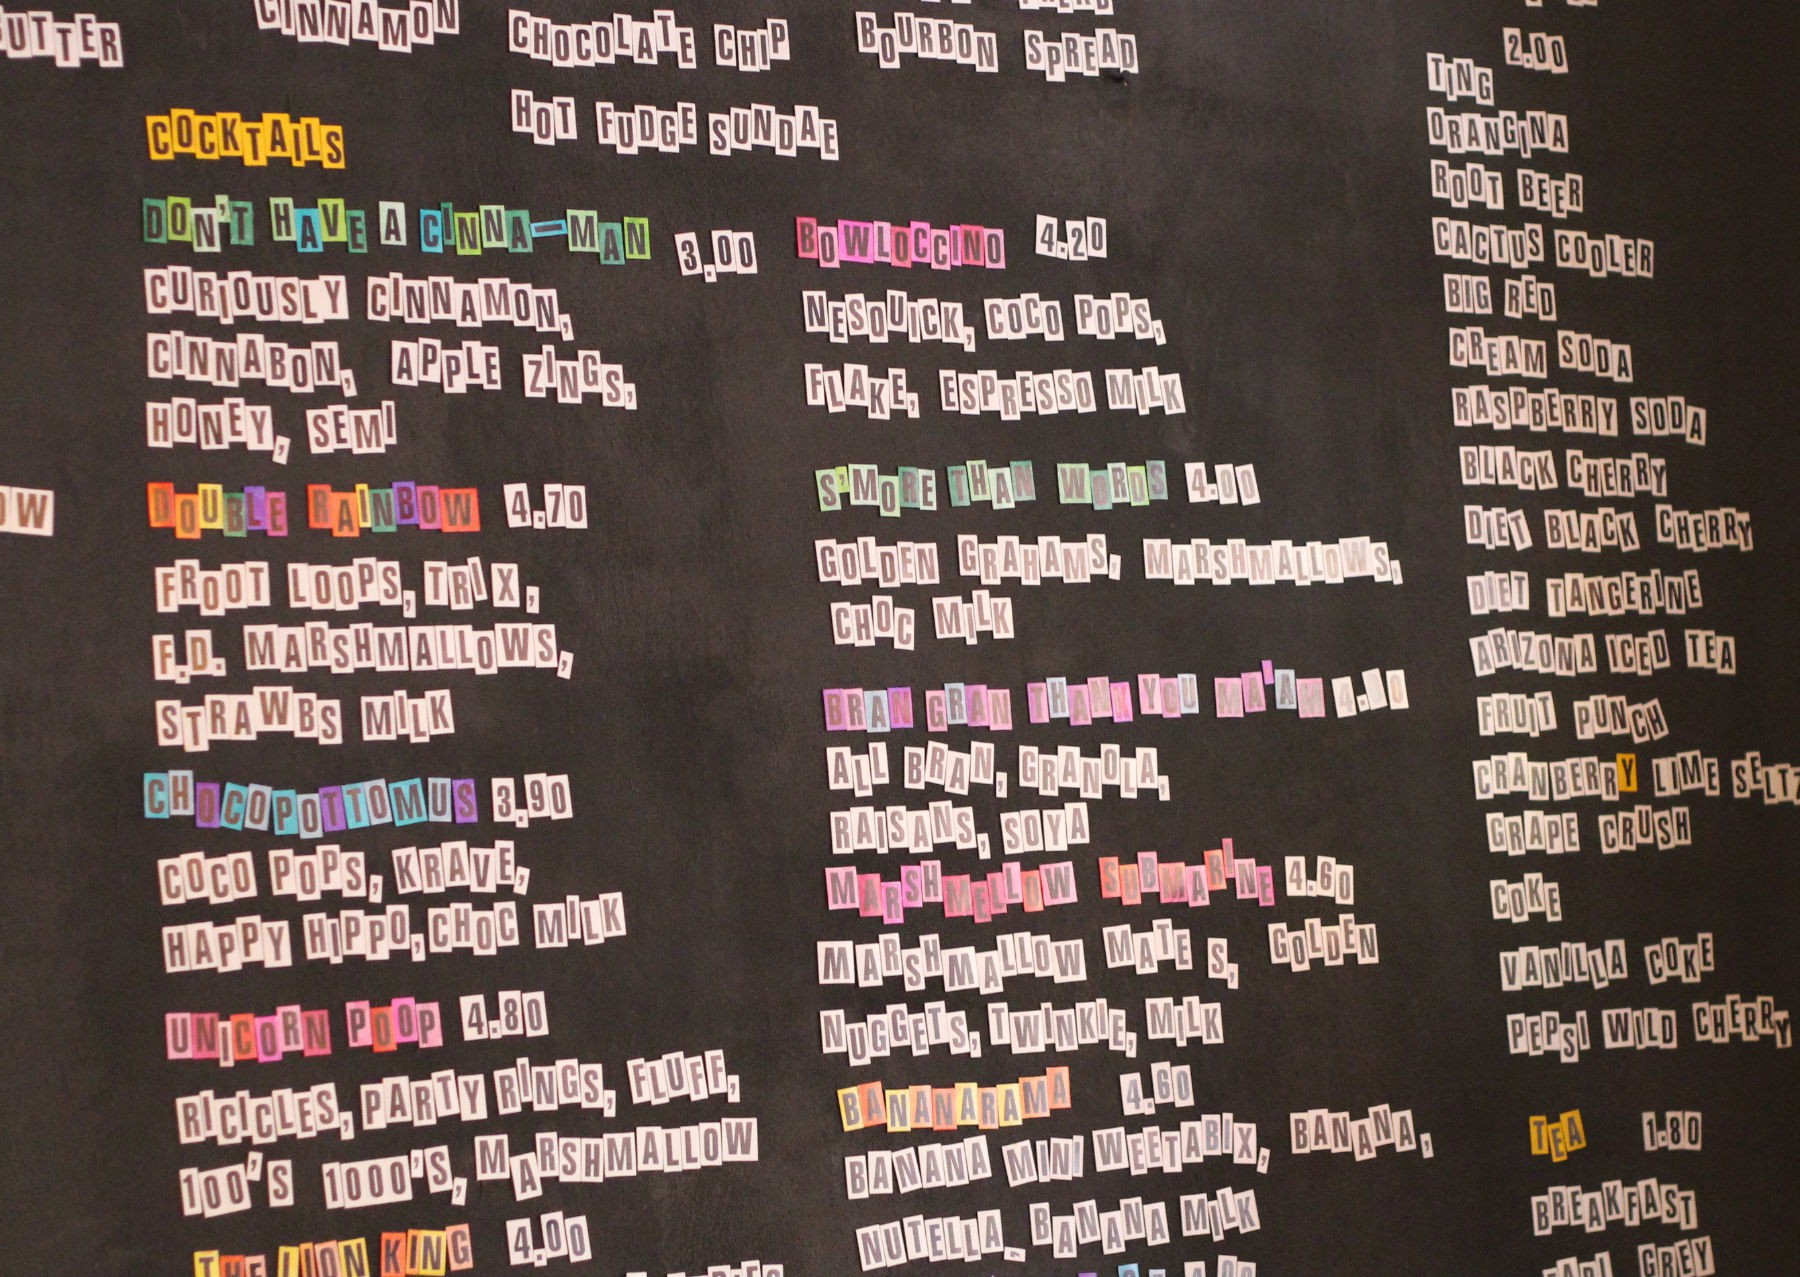 BUTTER
CINNAMON
CHOCOLATE CHIP
HOT FUDGE SUNDAE
BOURBON SPREAD
COCKTAILS
DON'T HAVE A CINNA-MAN 3.00
CURIOUSLY CINNAMON,
CINNABON, APPLE ZINGS,
HONEY, SEMI
DOUBLE RAINBOW 4.70
FROOT LOOPS, TRIX,
F.D. MARSHMALLOWS,
STRAWBS MILK
CHOCOPOTTOMUS 3.90
COCO POPS, KRAVE,
HAPPY HIPPO, CHOC MILK
UNICORN POOP 4.80
RICICLES, PARTY RINGS, FLUFF,
100'S 1000'S, MARSHMALLOW
THE LION KING 4.00
BOWLOCCINO 4.20
NESQUICK, COCO POPS,
FLAKE, ESPRESSO MILK
S'MORE THAN WORDS 4.00
GOLDEN GRAHAMS, MARSHMALLOWS,
CHOC MILK
BRAN GRAN THANK YOU MA'AM
ALL BRAN, GRANOLA,
RAISANS, SOYA
MARSHMELLOW SUBMARINE 4.60
MARSHMALLOW MATES, GOLDEN
NUGGETS, TWINKIE, MILK
BANANARAMA 4.60
BANANA MINI WEETABIX, BANANA,
NUTELLA, BANANA MILK
2.00
TING
ORANGINA
ROOT BEER
CACTUS COOLER
BIG RED
CREAM SODA
RASPBERRY SODA
BLACK CHERRY
DIET BLACK CHERRY
DIET TANGERINE
ARIZONA ICED TEA
FRUIT PUNCH
CRANBERRY LIME SELTZ
GRAPE CRUSH
COKE
VANILLA COKE
PEPSI WILD CHERRY
TEA 1.80
BREAKFAST
EARL GREY